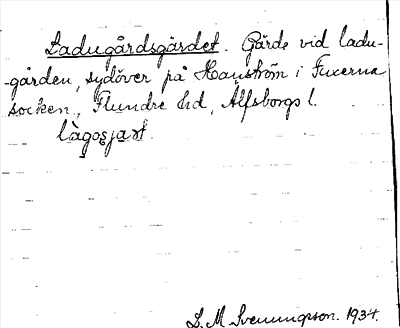 Ladugårdsgärdet. Gärde vid ladu-
-gården, sydöver på Hanström i Fuxerna
socken, Flundre hd, Älfsborgs l.
lågosjart
L. M. Svenungsson. 1934.